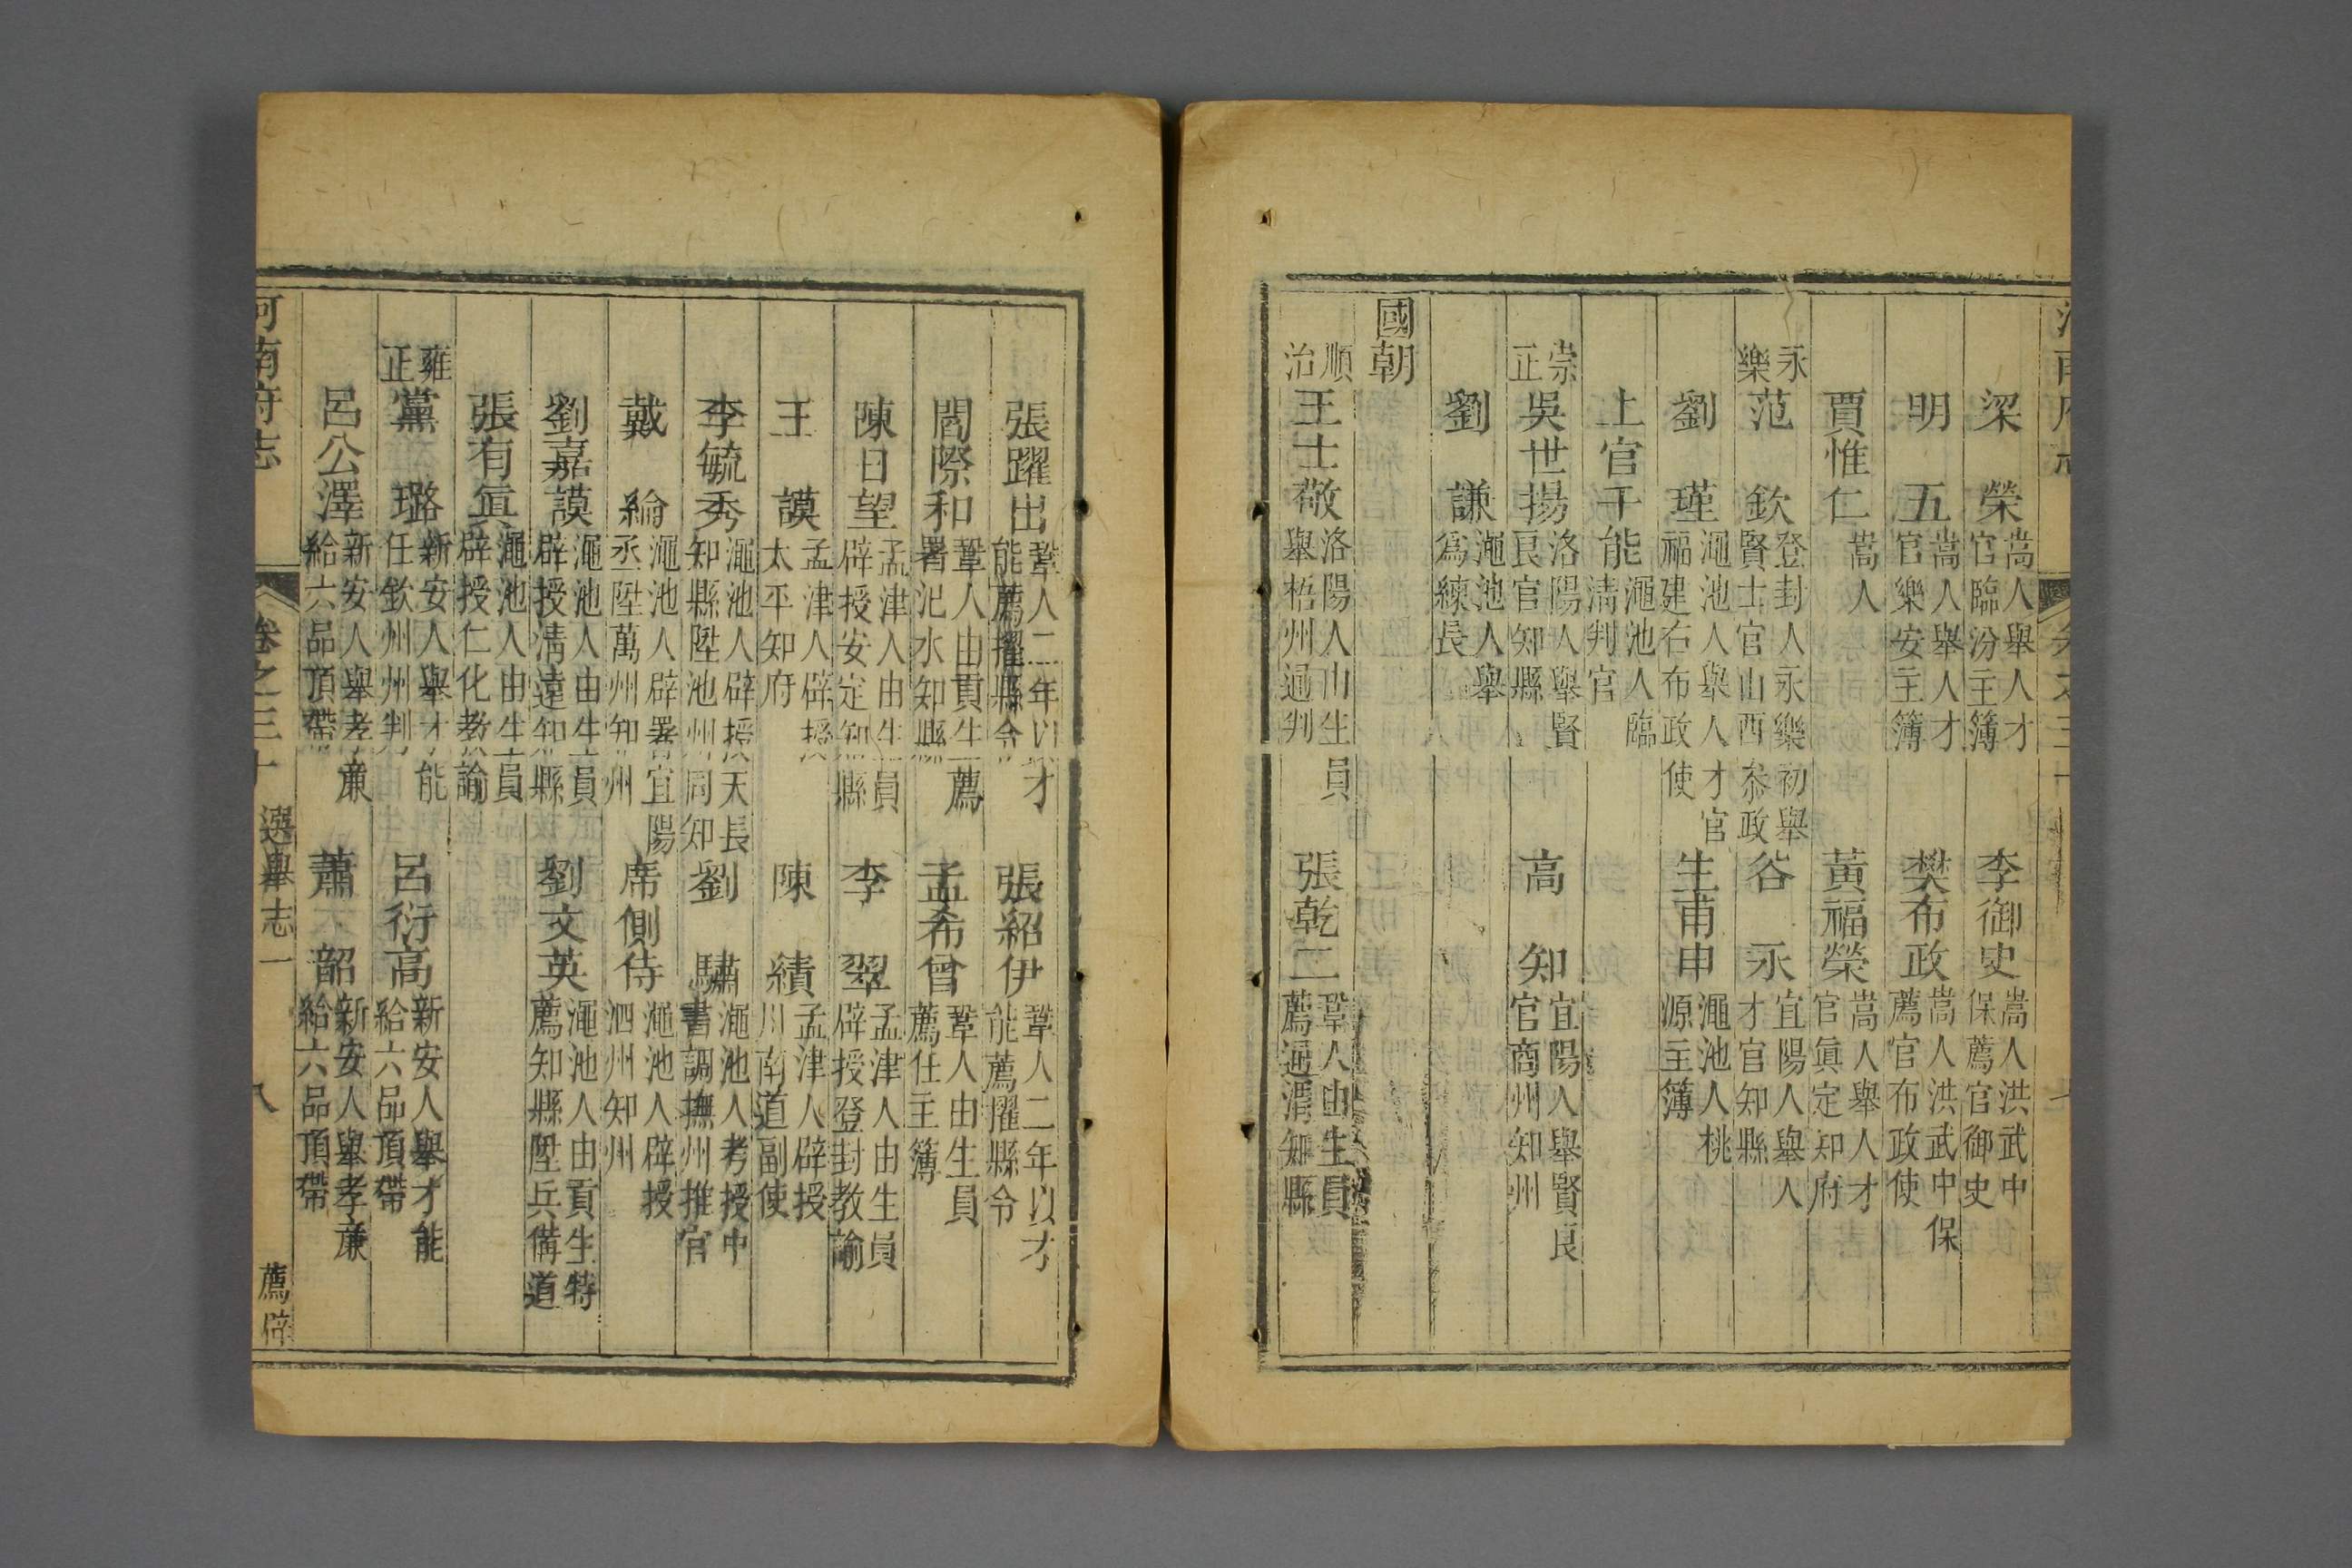 梁榮 嵩人舉人才官臨汾主簿 李御史 嵩人洪武中保薦官御史
明五 嵩人舉人才官樂安主簿 樊布政 嵩人洪武中保薦官布政使
賈惟仁 嵩人 黃福榮 嵩人舉人才官眞定知府
永樂 范欽 登封人永樂初舉賢士官山西叅政 谷永 宜陽人舉人才官知縣
劉瑾 澠池人舉人才官福建右布政使 生甫申 澠池人桃源主簿
上官干能 澠池人臨清判官
崇正 吳世揚 洛陽人舉賢良官知縣 高知 宜陽人舉賢良官商州知州
劉謙 澠池人舉爲練長
國朝
順治 王士敬 洛陽人由生員舉梧州通判 張乾二 鞏人由生員薦通渭知縣
張躍出 鞏人二年以才能薦擢縣令 張紹伊 鞏人二年以才能薦擢縣令
閻際和 鞏人由貢生薦署汜水知縣 孟希曾 鞏人由生員薦任主簿
陳日望 孟津人由生員辟授安定知縣 李翌 孟津人由生員辟授登封教諭
王謨 孟津人辟授太平知府 陳績 孟津人辟授川南道副使
李毓秀 澠池人辟授天長知縣陞池州同知 劉驌 澠池人考授中書調撫州推官
戴綸 澠池人辟署宜陽丞陞萬州知州 席側侍 澠池人辟授泗州知州
劉嘉謨 澠池人由生員辟授清遠知縣 劉文英 澠池人由貢生特薦知縣陞兵備道
張有眞 澠池人由生員辟授仁化教諭
雍正 黨璐 新安人舉才能任欽州州判 呂衍高 新安人舉才能給六品頂帶
呂公澤 新安人舉孝廉給六品頂帶 蕭韶 新安人舉孝廉給六品頂帶
河南府志 卷之三十 選舉志一 八 薦辟